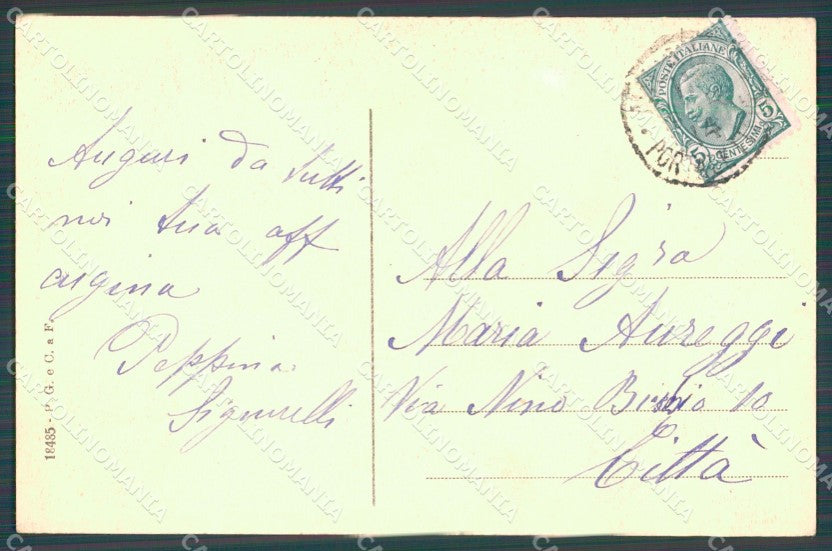 Auguri da tutti
noi tua aff
cugina
Peppina
Signorelli
18485 - P. G. e C. a F.
POSTE ITALIANE
5 CENTESIMI 5
Alla Sig.ra
Maria Aureggi
Via Nino Bixio 10
Città
CARTOLINOMANIA